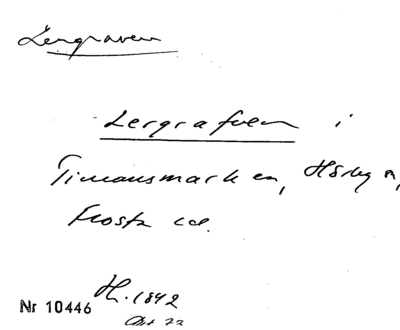 Lergraven
Lergrafven i
Timansmarken, Hörby sn,
Frosta hd.
Nr 10446 H. 1842
Akt 72